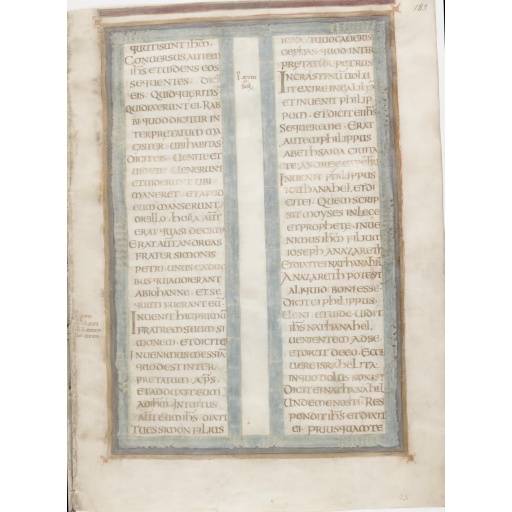 183
quuti sunt ihm.
Conuersus autem
ihs et uidens eos
sequentes · dicit
eis · Quid quaeritis
qui dixerunt ei · Rab
bi quod dicitur in
terpretatum ma
gister · ubi habitas
dicit eis · Uenite et
uidete · Uenerunt
et uiderunt ubi
maneret · et apud
eum manserunt
die illo · hora aut
erat quasi decima
Erat autem andreas
frater simonis
petri unus ex duo
bus qui audierant
ab iohanne · et se
cuti fuerant eum
Inuenit hic primum
fratrem suum si
monem · et dicit ei
Inuenimus messia
quod est inter
pretatum xps
et adduxit eum
ad ihm · Intuitus
autem ihs dixit
Tu es simon filius
iona · tu uocaueris
cephas · quod inter
pretatur petrus
In crastinum uolu
it exire in galilea
et inuenit philip
pum · et dicit ei ihs
Sequere me · Erat
autem philippus
a bethsaida ciuita
te andreae et petri
Inuenit philippus
nathanahel · et di
cit ei · Quem scrip
sit moyses in lege
et prophetae · inue
nimus ihm filium
ioseph a nazareth
Et dixit ei nathanahel
A nazareth potest
aliquid boni esse
Dicit ei philippus
Ueni et uide · Uidit
ihs nathanahel
uenientem ad se
et dicit de eo · Ecce
uere israhelita
in quo dolus non est
Dicit ei nathanahel
Unde me nosti · Res
pondit ihs et dixit
ei · Prius quam te